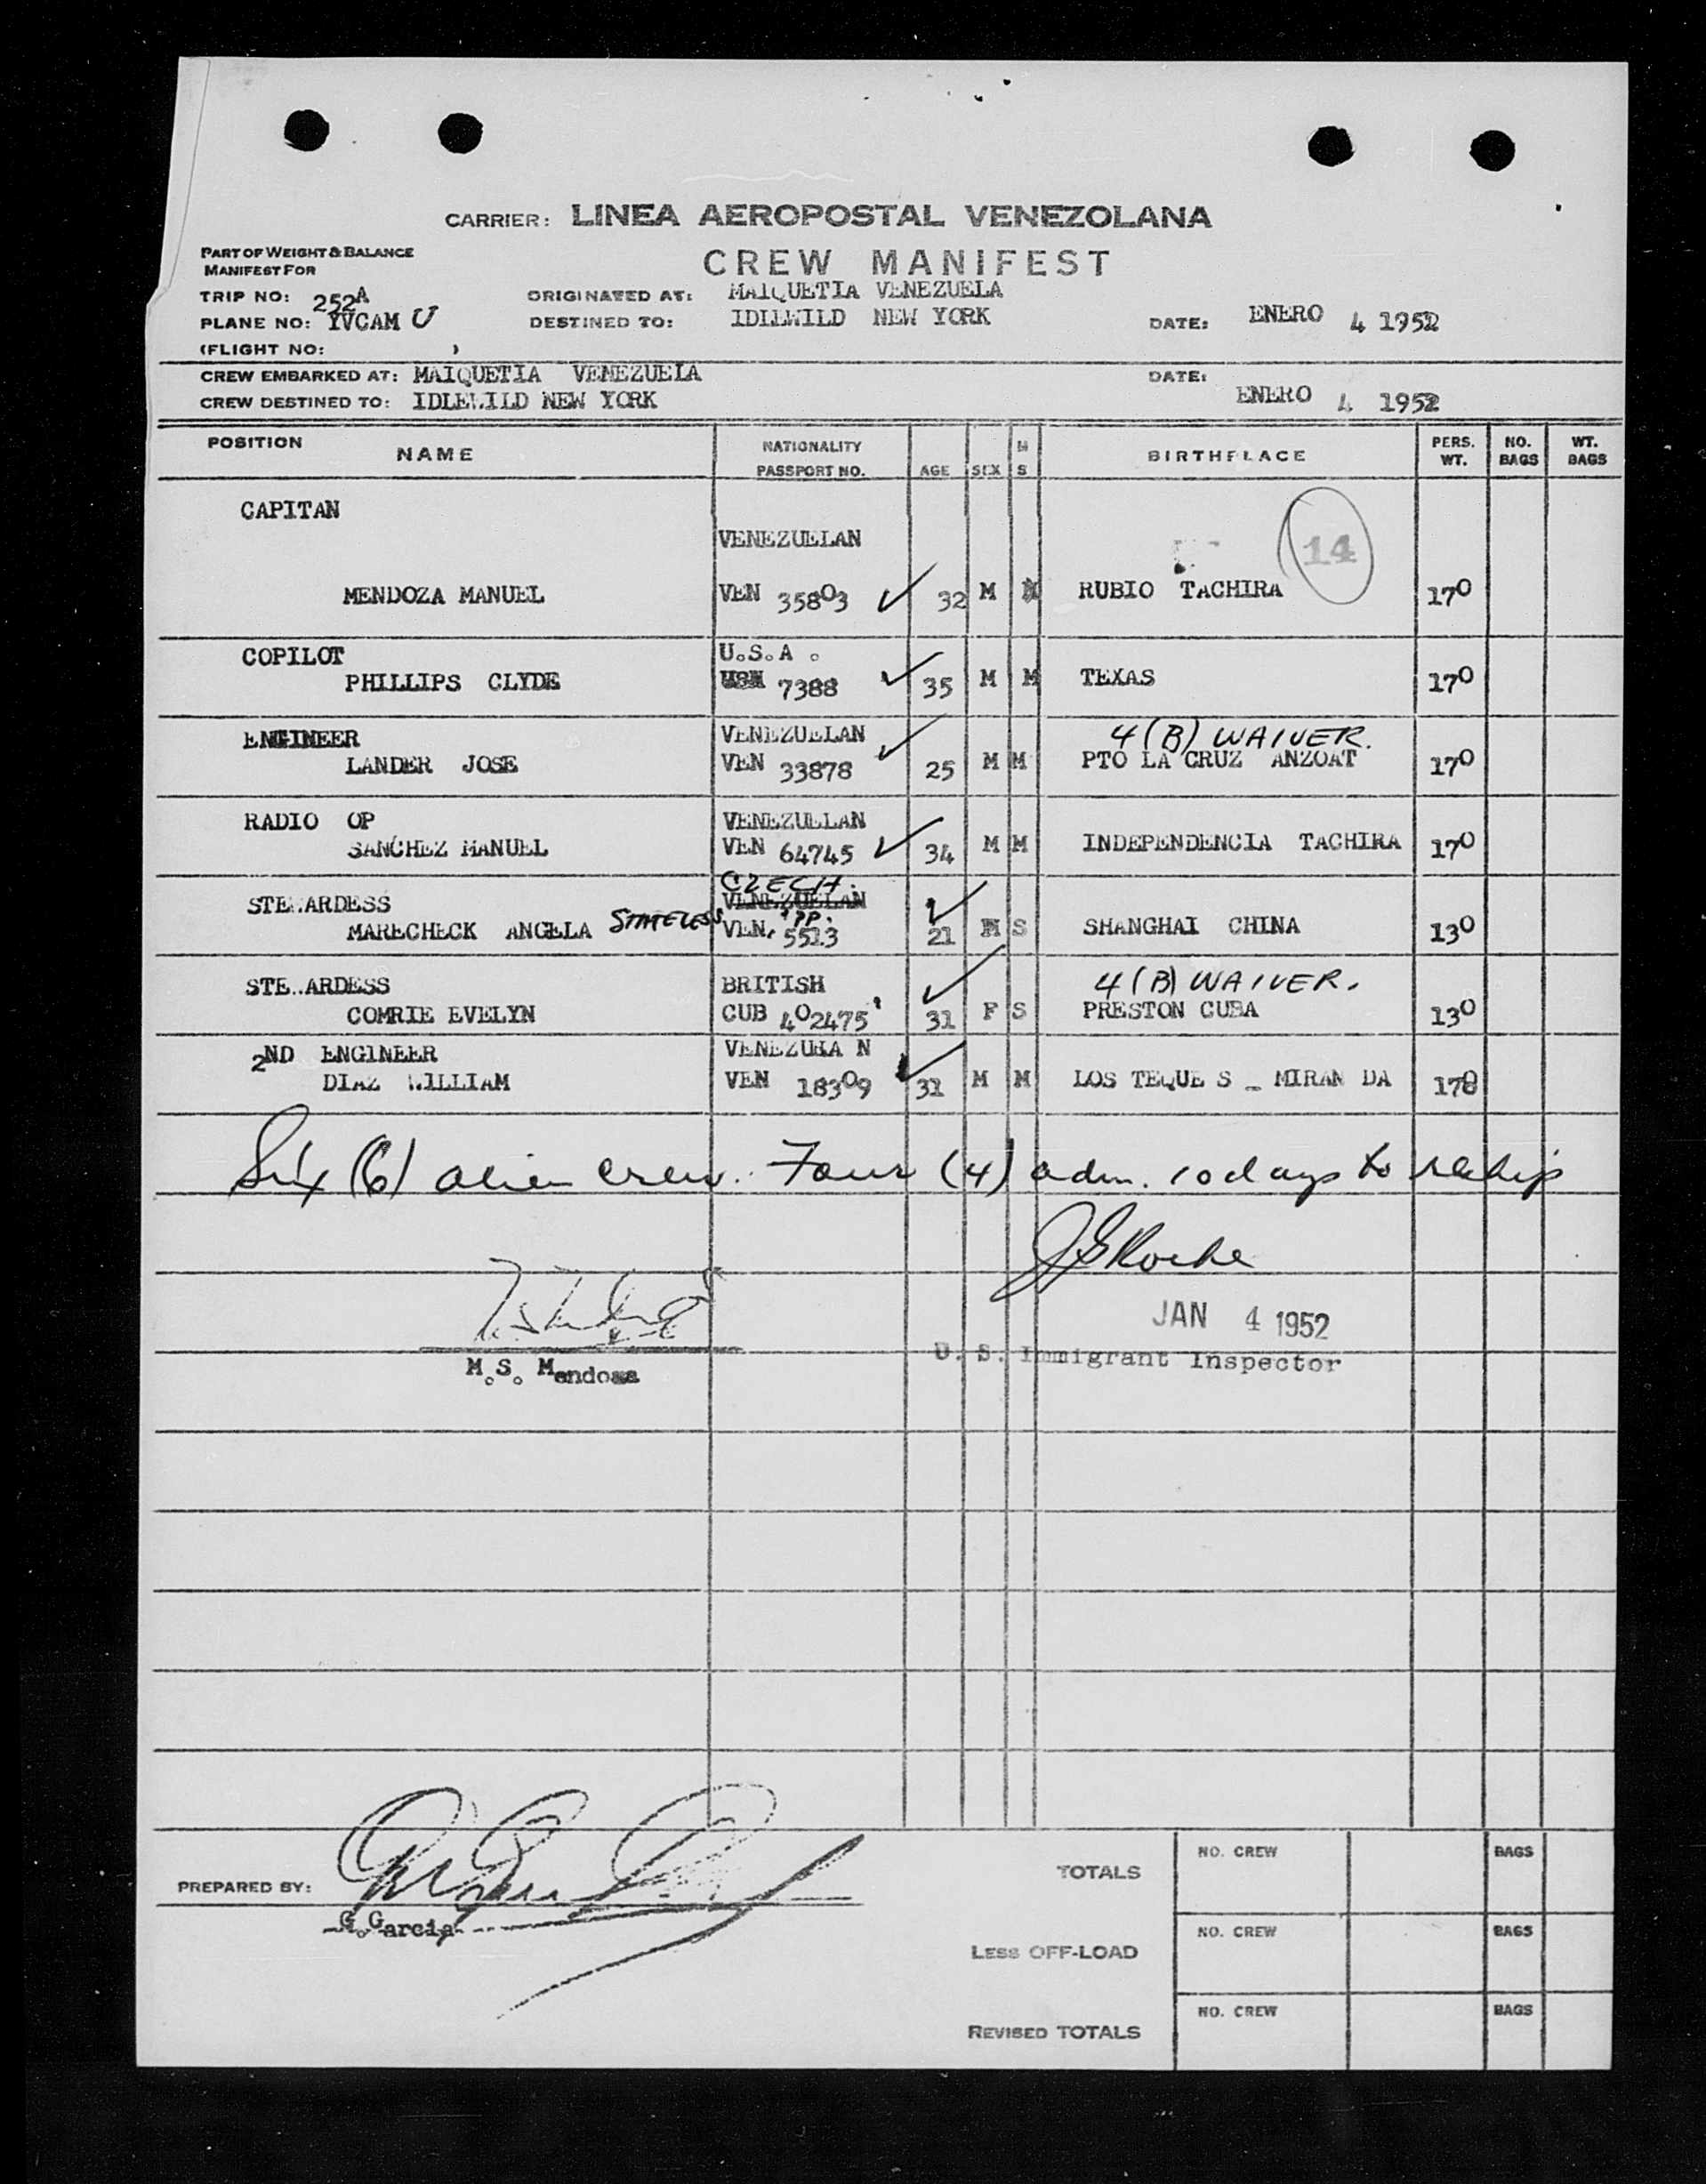 CARRIER: LINEA AEROPOSTAL VENEZOLANA
PART OF WEIGHT & BALANCE
MANIFEST FOR
CREW MANIFEST
TRIP NO: 252A ORIGINATED AT: MAIQUETIA VENEZUELA
PLANE NO: YVCAM U DESTINED TO: IDLEWILD NEW YORK DATE: ENERO 4 1952
(FLIGHT NO: )
CREW EMBARKED AT: MAIQUETIA VENEZUELA DATE:
CREW DESTINED TO: IDLEWILD NEW YORK ENERO 4 1952
POSITION NAME NATIONALITY PASSPORT NO. AGE SEX M S BIRTHPLACE PERS. WT. NO. BAGS WT. BAGS
CAPITAN
VENEZUELAN 14
MENDOZA MANUEL VEN 35803 32 M RUBIO TACHIRA 170
COPILOT U.S.A.
PHILLIPS CLYDE 7388 35 M M TEXAS 170
ENGINEER VENEZUELAN 4(B) WAIVER.
LANDER JOSE VEN 33878 25 M M PTO LA CRUZ ANZOAT 170
RADIO OP VENEZUELAN
SANCHEZ MANUEL VEN 64745 34 M M INDEPENDENCIA TACHIRA 170
CZECH.
STEWARDESS VENEZUELAN
MARECHECK ANGELA STATELESS VEN. PP. 5513 21 S SHANGHAI CHINA 130
STEWARDESS BRITISH 4(B) WAIVER.
COMRIE EVELYN CUB 402475 31 F S PRESTON CUBA 130
2ND ENGINEER VENEZULA N
DIAZ WILLIAM VEN 18309 31 M M LOS TEQUE S _ MIRAN DA 178
Six (6) alien crew. Four (4) adm. 10 days to reship
JAN 4 1952
U. S. Immigrant Inspector
M.S. Mendoza
PREPARED BY:
G. Garcia
TOTALS NO. CREW BAGS
LESS OFF-LOAD NO. CREW BAGS
REVISED TOTALS NO. CREW BAGS